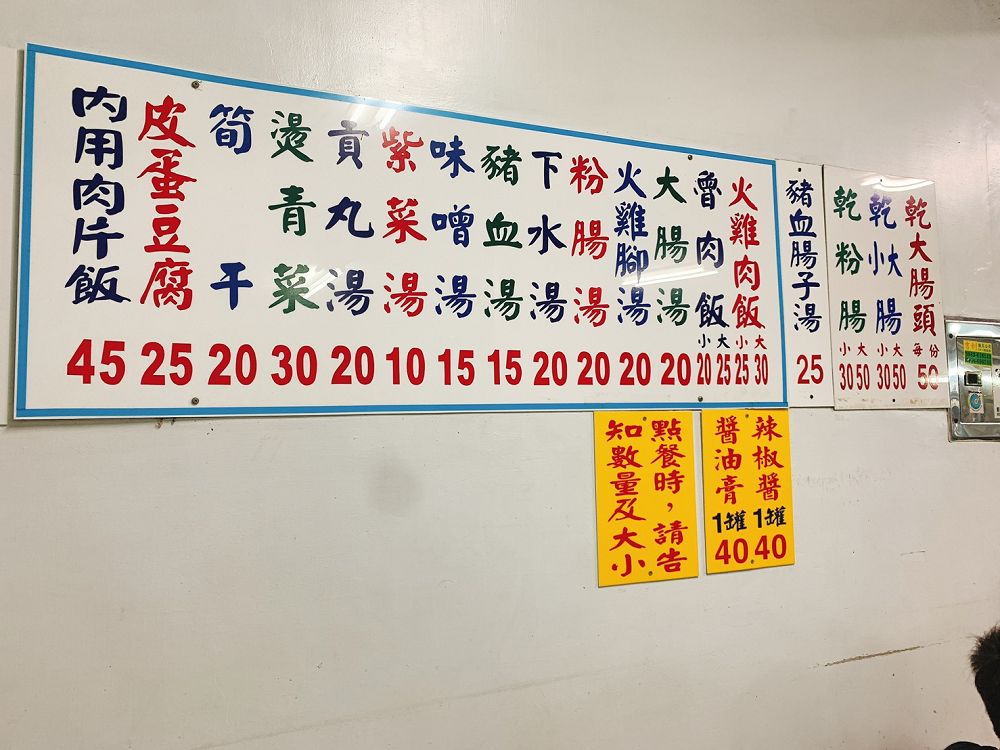 乾大腸頭 每份 50
乾小大腸 小大 30 50
乾粉腸 小大 30 50
豬血腸子湯 25
火雞肉飯 小大 25 30
魯肉飯 小大 20 25
大腸湯 20
火雞腳湯 20
粉腸湯 20
下水湯 20
豬血湯 15
味噌湯 15
紫菜湯 10
貢丸湯 20
燙青菜 30
筍干 20
皮蛋豆腐 25
內用肉片飯 45
辣椒醬 1罐 40
醬油膏 1罐 40
點餐時，請告
知數量及大小